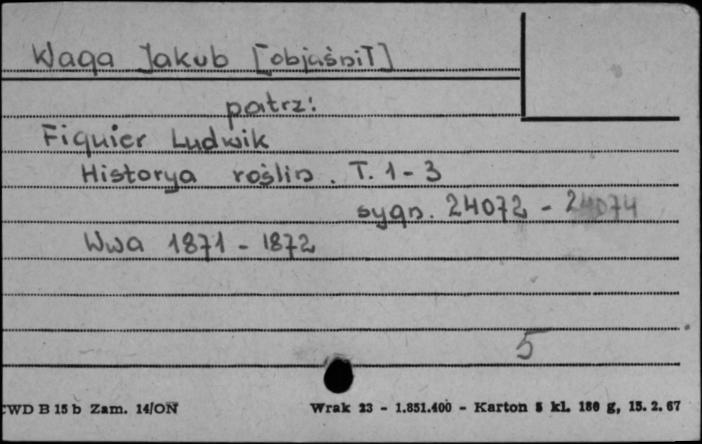 Waga Jakub [objaśnił]
patrz:
Figuier Ludwik
Historya roślin. T. 1-3
sygn. 24072 - 24074
Wwa 1871 - 1872
5
CWD B 15 b Zam. 14/ON Wrak 23 - 1.851.400 - Karton 5 kl. 180 g, 15. 2. 67